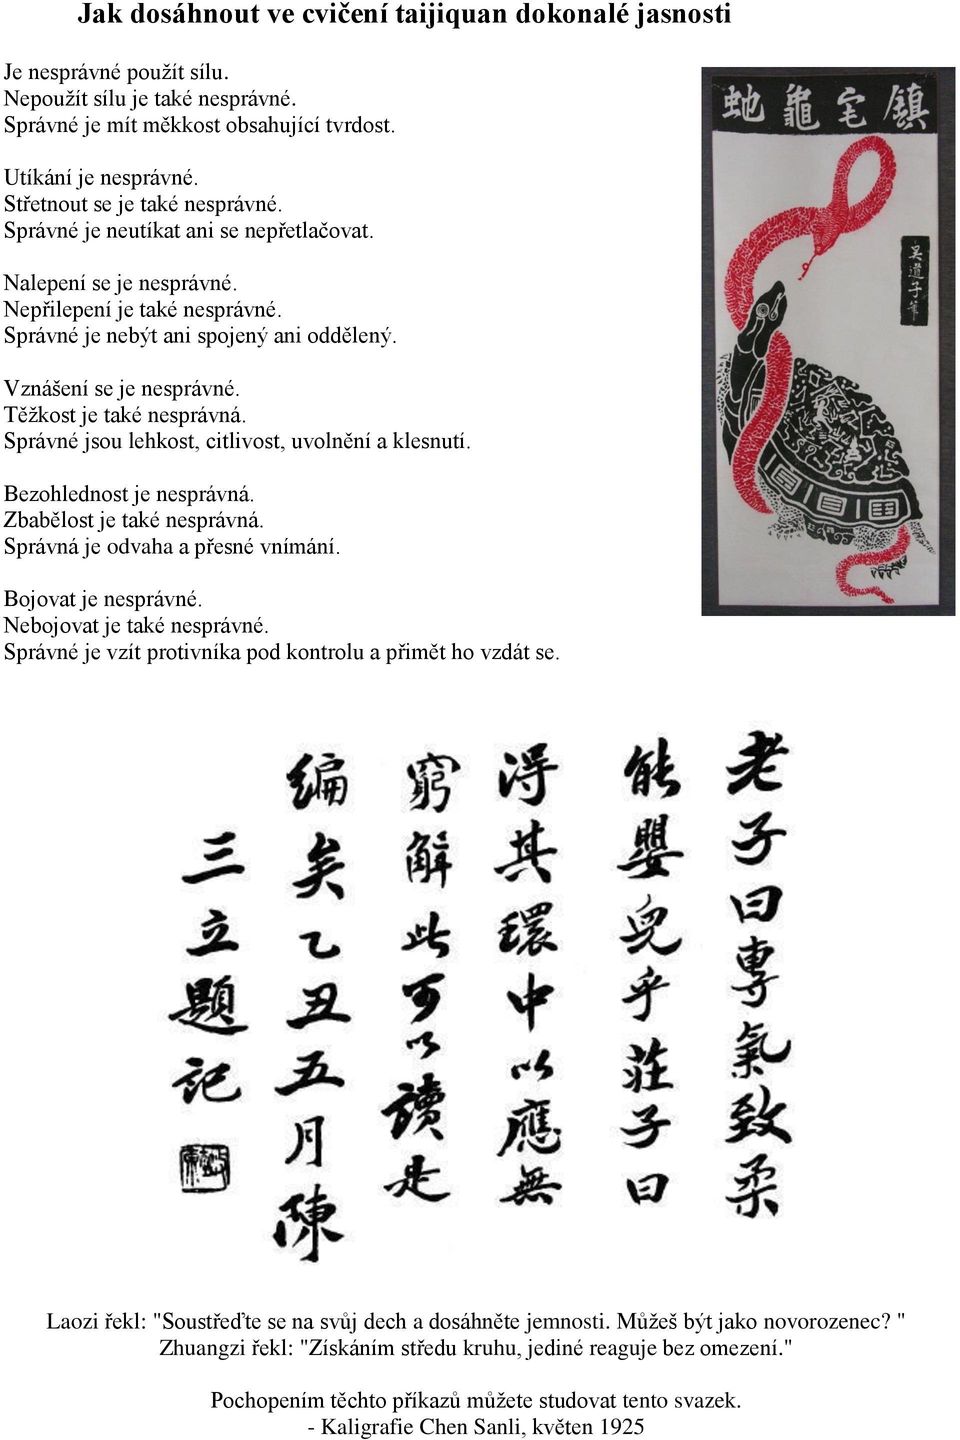 Jak dosáhnout ve cvičení taijiquan dokonalé jasnosti
Je nesprávné použít sílu.
Nepoužít sílu je také nesprávné.
Správné je mít měkkost obsahující tvrdost.
Utíkání je nesprávné.
Střetnout se je také nesprávné.
Správné je neutíkat ani se nepřetlačovat.
Nalepení se je nesprávné.
Nepřilepení je také nesprávné.
Správné je nebýt ani spojený ani oddělený.
Vznášení se je nesprávné.
Těžkost je také nesprávná.
Správné jsou lehkost, citlivost, uvolnění a klesnutí.
Bezohlednost je nesprávná.
Zbabělost je také nesprávná.
Správná je odvaha a přesné vnímání.
Bojovat je nesprávné.
Nebojovat je také nesprávné.
Správné je vzít protivníka pod kontrolu a přimět ho vzdát se.
鎮宅龜虵
吳道子筆
老子曰專氣致柔
能嬰兒乎莊子曰
得其環中以應無
窮解此可以讀是
編矣乙丑五月陳
三立題記
Laozi řekl: "Soustřeďte se na svůj dech a dosáhněte jemnosti. Můžeš být jako novorozenec? "
Zhuangzi řekl: "Získáním středu kruhu, jediné reaguje bez omezení."
Pochopením těchto příkazů můžete studovat tento svazek.
- Kaligrafie Chen Sanli, květen 1925